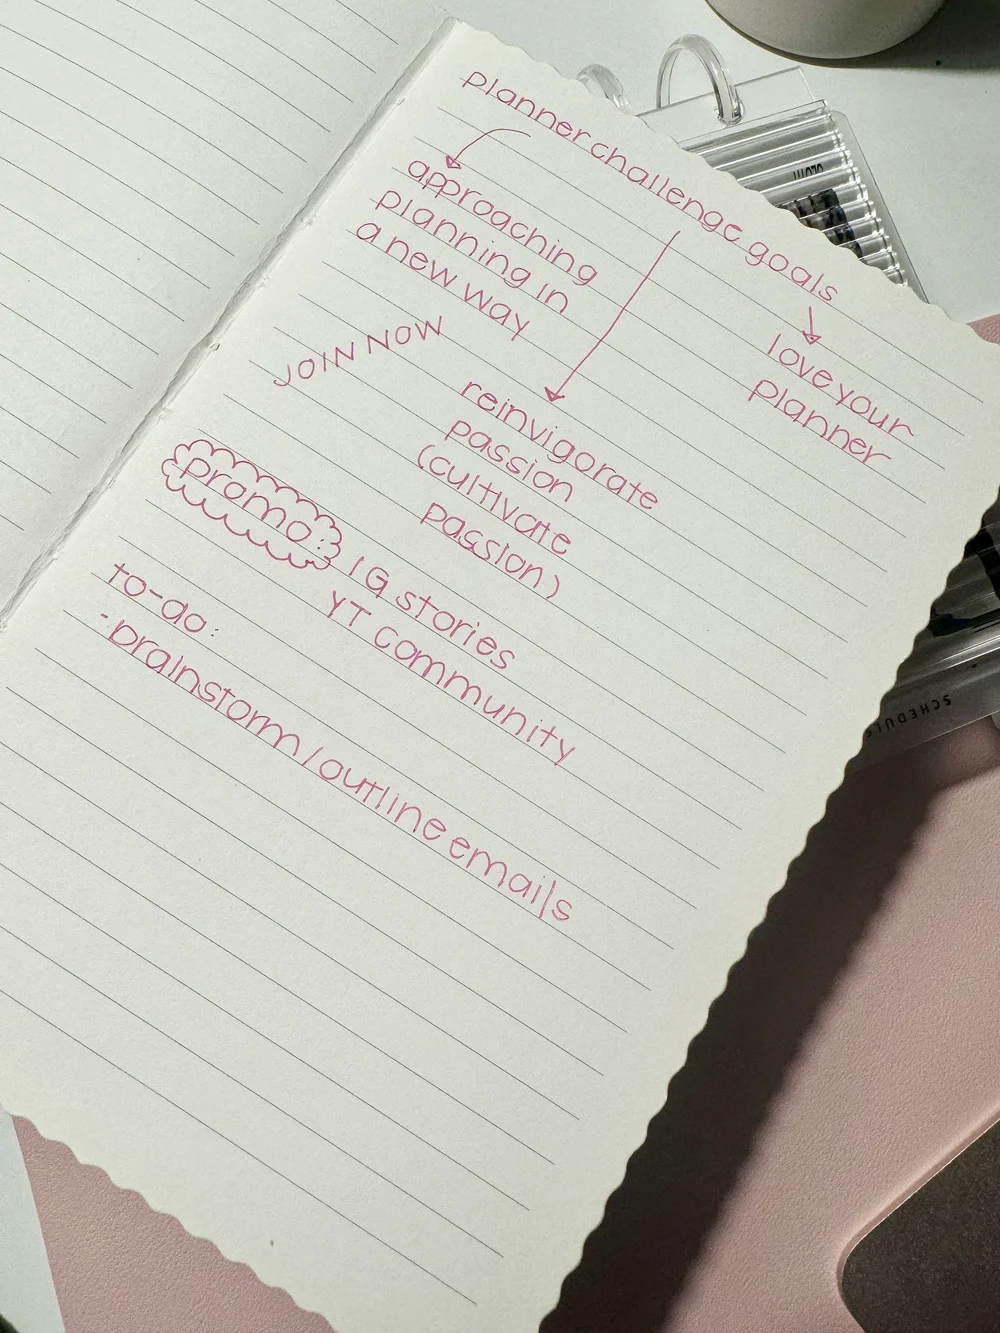 planner challenge goals
approaching
planning in
a new way
JOIN NOW
reinvigorate
passion
(cultivate
passion)
love your
planner
promo:
IG stories
YT community
to-do:
-brainstorm/outline emails
SCHEDULE